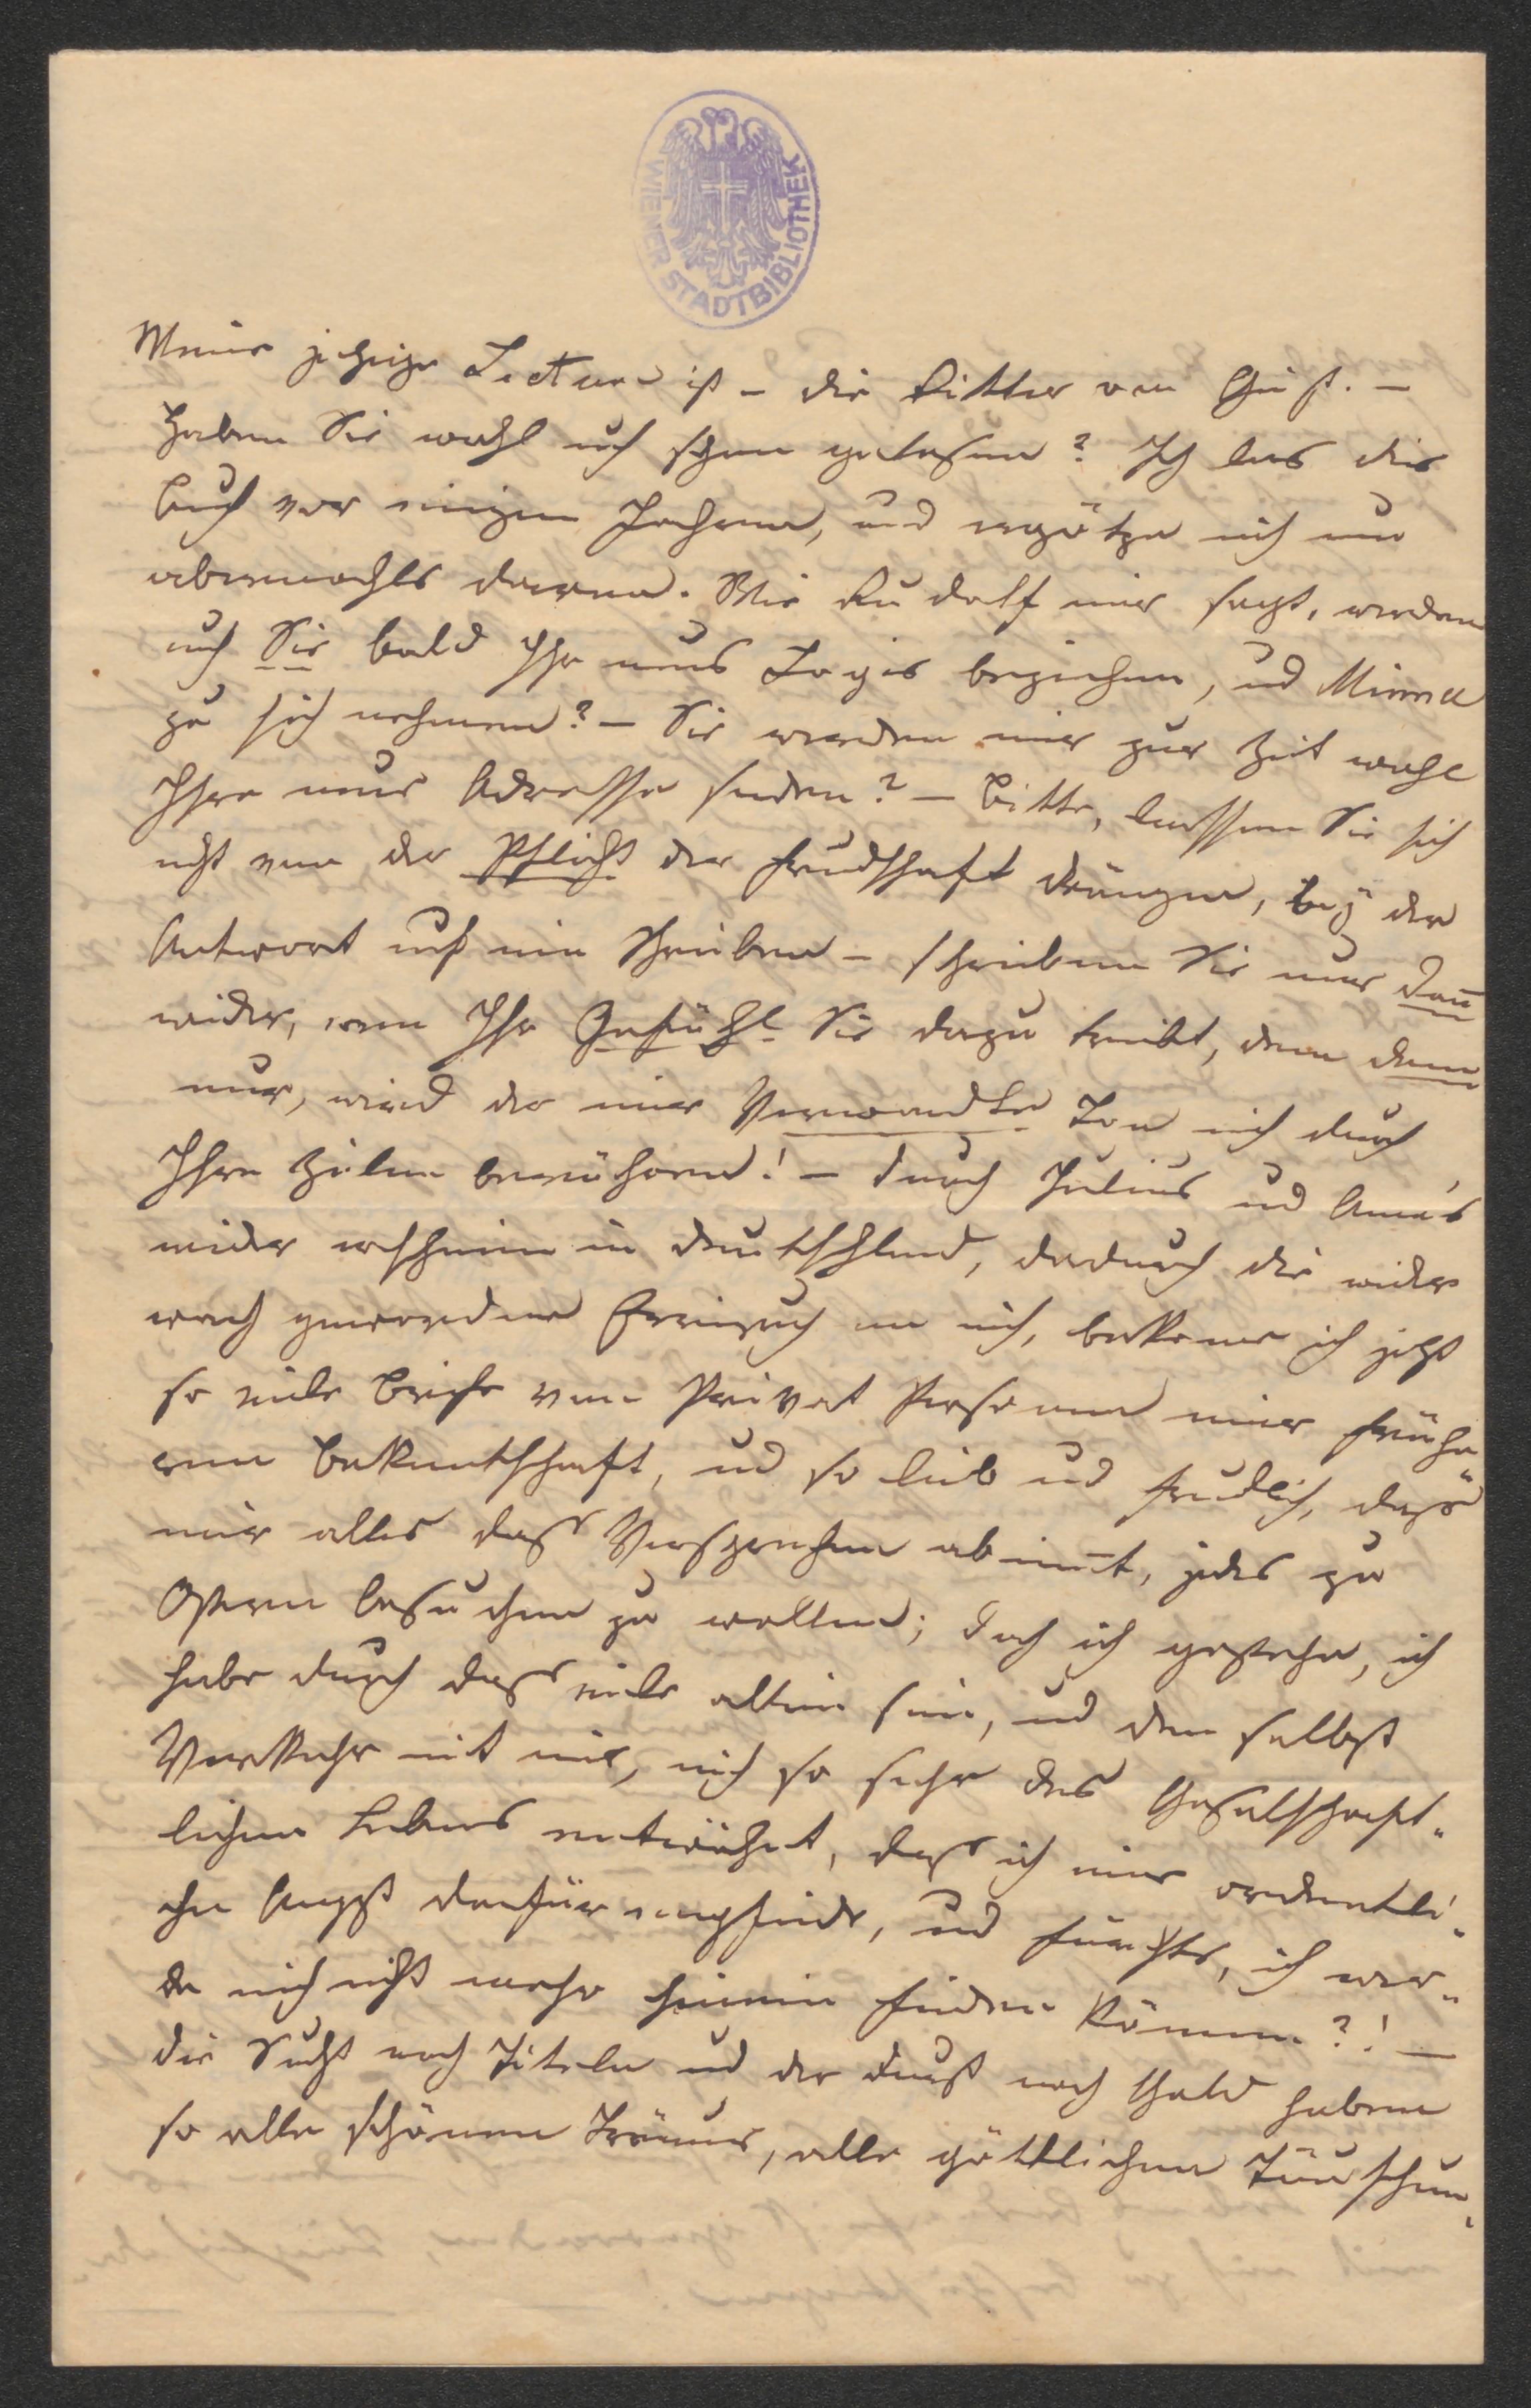 WIENER STADTBIBLIOTHEK
Meine jetzige Lecture ist – die Ritter vom Geist. –
Haben Sie wohl auch schon gelesen? Ich las dies
Buch vor einigen Jahren, und ergötze mich nun
abermahls daran. Wie Rudolf mir sagt, werden
auch Sie bald Ihr neues Logis beziehen, und Minna
zu sich nehmen? – Sie werden mir zur Zeit wohl
Ihre neue Adresse senden? – Bitte, lassen Sie sich
nicht von der Pflicht der Freundschaft drängen, bey der
Antwort auf mein Schreiben – schreiben Sie nur dann
wieder, wenn Ihr Gefühl Sie dazu treibt, denn dann
nur, wird der mir Verwandte Ton mich durch
Ihre Zeilen berühren! – Durch Julius und Anna's
wieder erscheinen in Deutschland, dadurch die wieder
wach gewordene Erinerung an mich, bekome ich jetzt
so viele Briefe von Privat Personen meiner frühe„
ren Bekantschaft, und so lieb und freundlich, dass
mir alles dass Versprechen abnimt, jedes zu
Ostern besuchen zu wollen; doch ich gestehe, ich
habe durch dass viele allein sein, und dem selbst
Verkehr mit mir, mich so sehr des Geselschaft„
lichen Lebens entwöhnt, dass ich eine ordentli„
che Angst dafür empfinde, und fürchte, ich wer„
de mich nicht mehr hinein finden können?! –
die Sucht nach Titeln und der Durst nach Gold haben
so alle schönen Träume, alle göttlichen Täuschun„